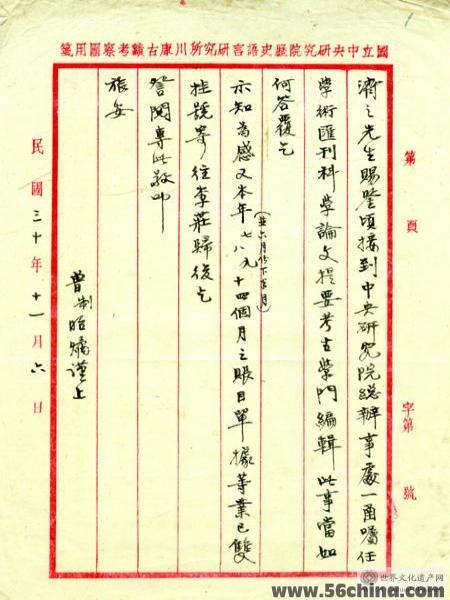 國立中央研究院歷史語言研究所川康古蹟考察團用箋
第 頁 字第 號
濟之先生賜鑒頃接到中央研究院總辦事處一函囑任
學術匯刊科學論文提要考古學門編輯此事當如
何答覆乞
示知為感又本年七八九十四個月之賬目單據等業已雙
(並六月份下半月)
挂號寄往李莊歸後乞
詧閱專此敬叩
旅安
曾制昭燏謹上
民國三十年十一月六日
世界文化遗产网
www.56china.com